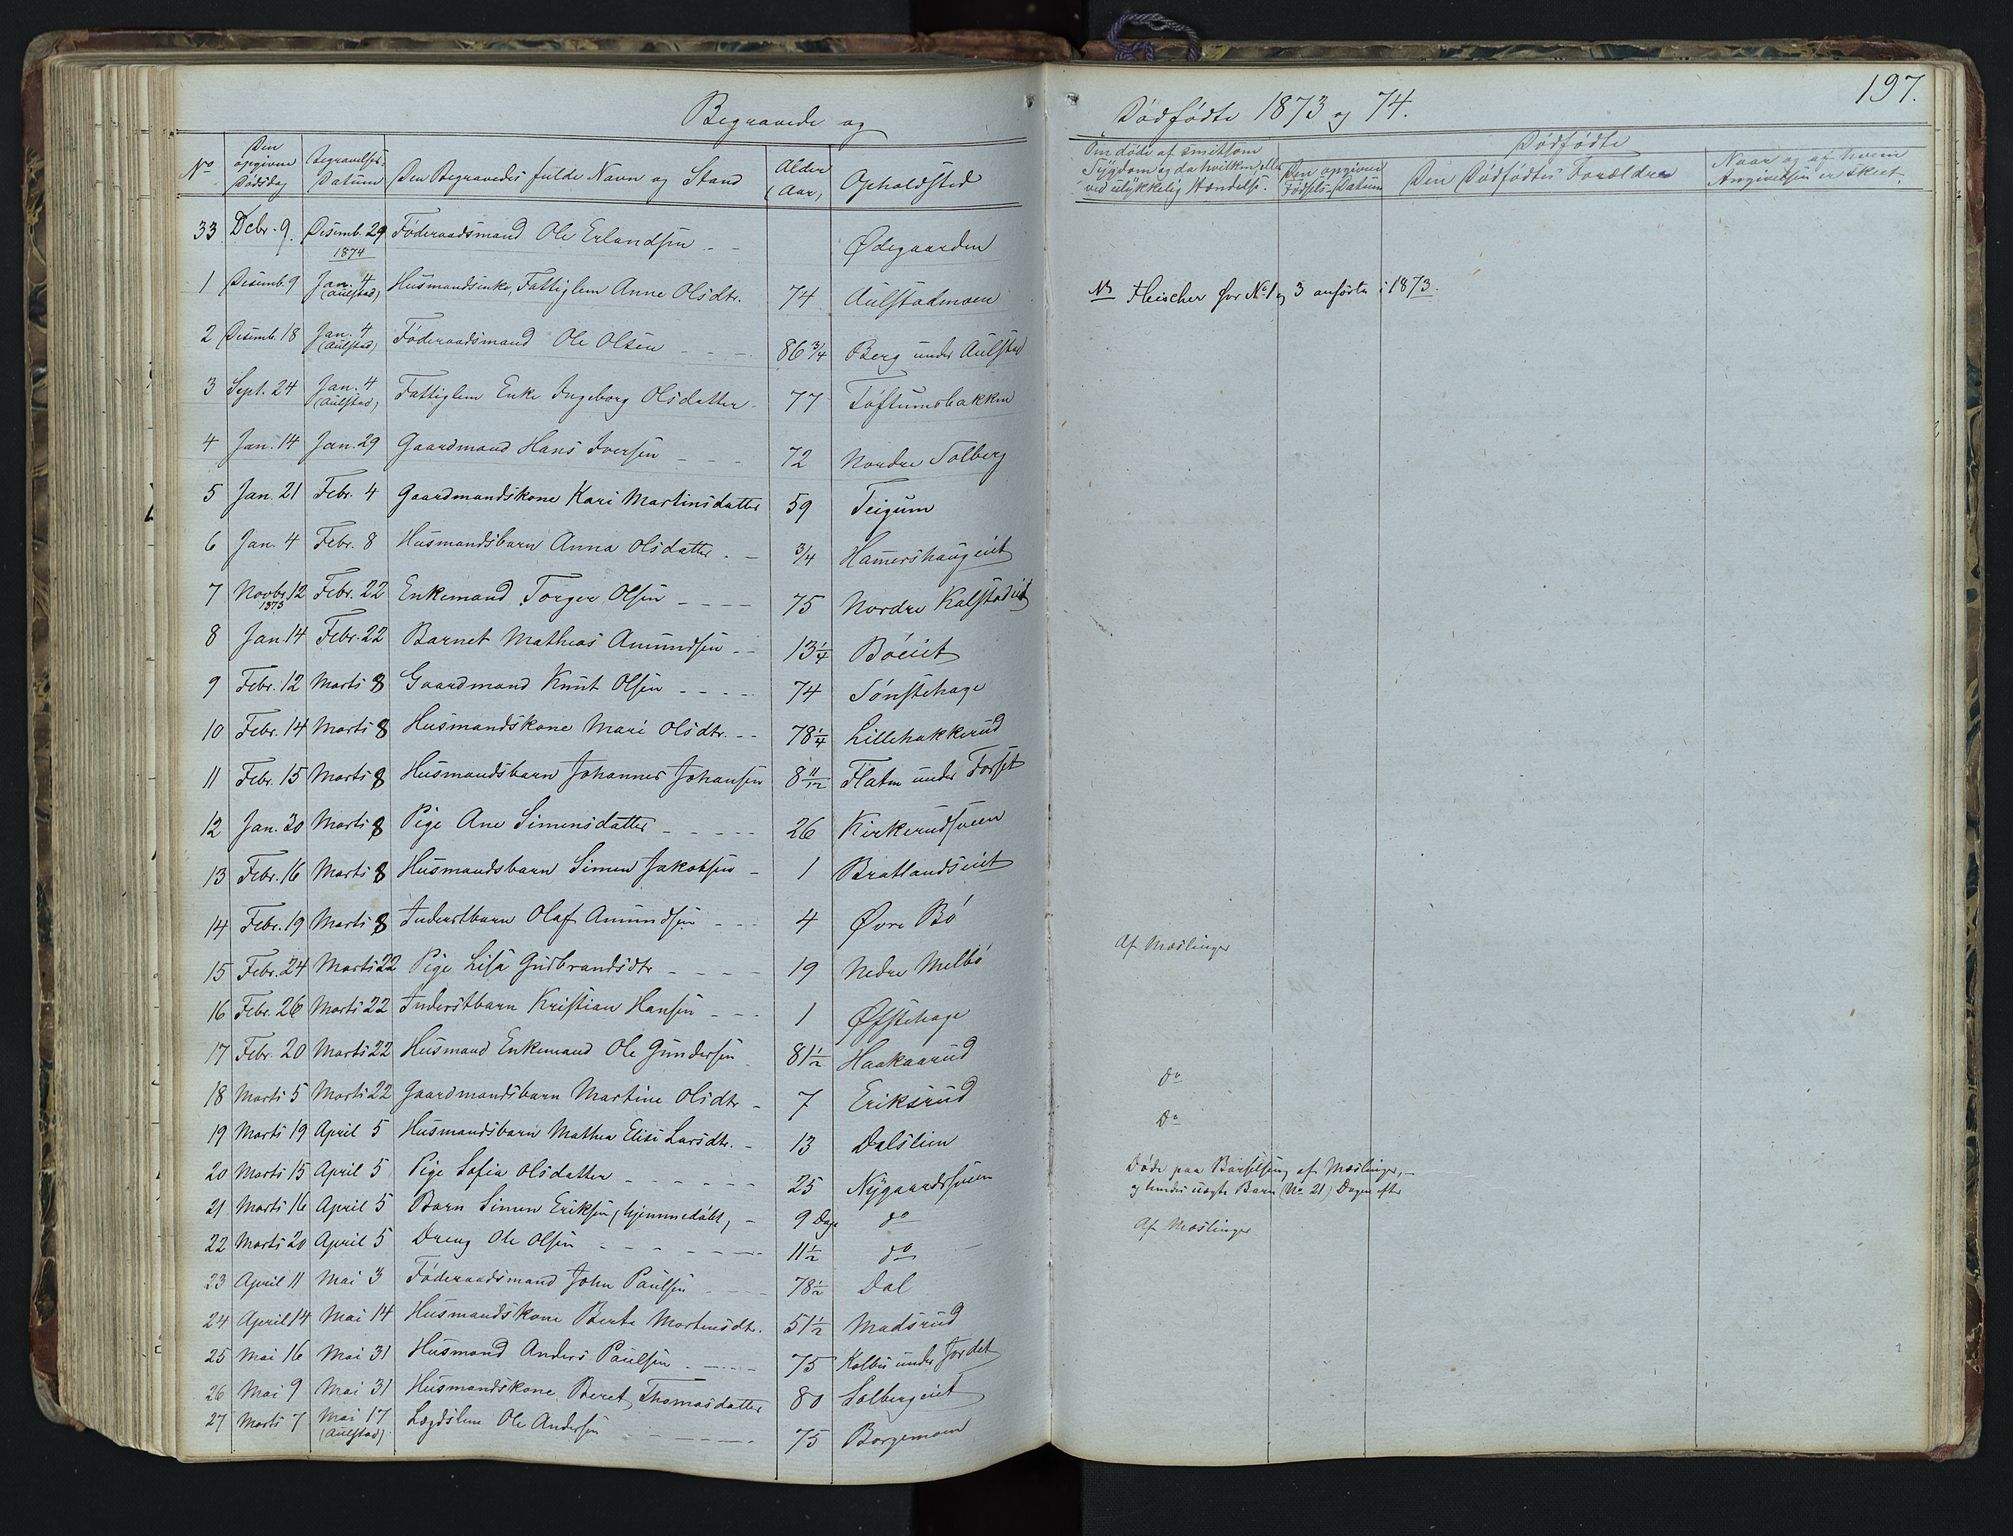 197.
Begravede og Dødfødte 1873 og 74.
No
Den opgivne Dødsdag
Begravelses-Datum
Den Begravedes fulde Navn og Stand
Alder (Aar)
Opholdsted
Om døde af smitsom Sygdom og da hvilken eller ved ulykkelig Hændelse.
Dødfødte
Den opgivne Fødsels-Datum
Den Dødfødtes Forældre
Naar og af hvem Angivelsen er skeet.
33 Decbr. 9. Desemb. 29 Føderaadsmand Ole Erlandsen - - Ødegaarden
1874
1 Desemb. 9 Jan. 4 (Aulstad) Husmandsenke, Fattiglem Anne Olsdtr. 74 Aulstadmoen
NB Fleischer før No. 1 og 3 anførte i 1873.
2 Desemb. 18 Jan. 4 (Aulstad) Føderaadsmand Ole Olsen - - - 86 3/4 Berg under Aulstad
3 Sept. 24 Jan. 4 (Aulstad) Fattiglem Enke Ingeborg Olsdatter - 77 Toftumsbakken
4 Jan. 14 Jan. 29 Gaardmand Hans Iversen - - - 72 Nordre Solberg
5 Jan. 21 Febr. 4 Gaardmandskone Kari Martinsdatter 59 Teigum
6 Jan. 4 Febr. 8 Husmandsbarn Anna Olsdatter - - 3/4 Hamershaugeiet
7 Novbr. 12 1873 Febr. 22 Enkemand Torger Olsen - - - - 75 Nordre Kalstadeiet
8 Jan. 14 Febr. 22 Barnet Mathias Amundsen - - 13 1/4 Bøeiet
9 Febr. 12 Marts 8 Gaardmand Knut Olsen - - - - 74 Sønstehage
10 Febr. 14 Marts 8 Husmandskone Mari Olsdtr. - - 78 1/4 Lillehakkerud
11 Febr. 15 Marts 8 Husmandsbarn Johannes Johansen 8 11/12 Flaten under Forset
12 Jan. 30 Marts 8 Pige Ane Simensdatter - - - - - 26 Kirkerudsveen
13 Febr. 16 Marts 8 Husmandsbarn Simen Jakobsen - 1 Bratlandseiet
14 Febr. 19 Marts 8 Inderstbarn Olaf Amundsen - - - 4 Øvre Bø
Af Mæslinger
15 Febr. 24 Marts 22 Pige Lisa Gudbrandsdtr - - - - 19 Nedre Melbø
16 Febr. 26 Marts 22 Inderstbarn Kristian Hansen - - - 1 Øfstehage
17 Febr. 20 Marts 22 Husmand Enkemand Ole Gundersen - 81 1/2 Haakaarud
Do
18 Marts 5 Marts 22 Gaardmandsbarn Martine Olsdtr - 7 Eriksrud
Do
19 Marts 19 April 5 Husmandsbarn Mathea Elise Larsdtr. - 13 Dalslien
20 Marts 15 April 5 Pige Sofia Olsdatter - - - - - - 25 Nygaardssveen
Døde paa Barselseng af Mæslinger, -
og hendes uægte Barn (No 21) Dagen efter
21 Marts 16 April 5 Barn Simen Eriksen, hjemmedøbt, - 9 Dage do
22 Marts 20 April 5 Dreng Ole Olsen - - - - - - 11 1/2 do
Af Mæslinger
23 April 11 Mai 3 Føderaadsmand John Paulsen - - - - 78 1/2 Dal
24 April 14 Mai 14 Husmandskone Berte Mortensdtr. 51 1/2 Madsrud
25 Mai 16 Mai 31 Husmand Anders Paulsen - - - - - 75 under Jordet
26 Mai 9 Mai 31 Husmandskone Beret Thomasdatter 80 Solbergeiet
27 Marts 7 Mai 17 (Aulstad) Lægdslem Ole Andersen - - - - 75 Borgemoen